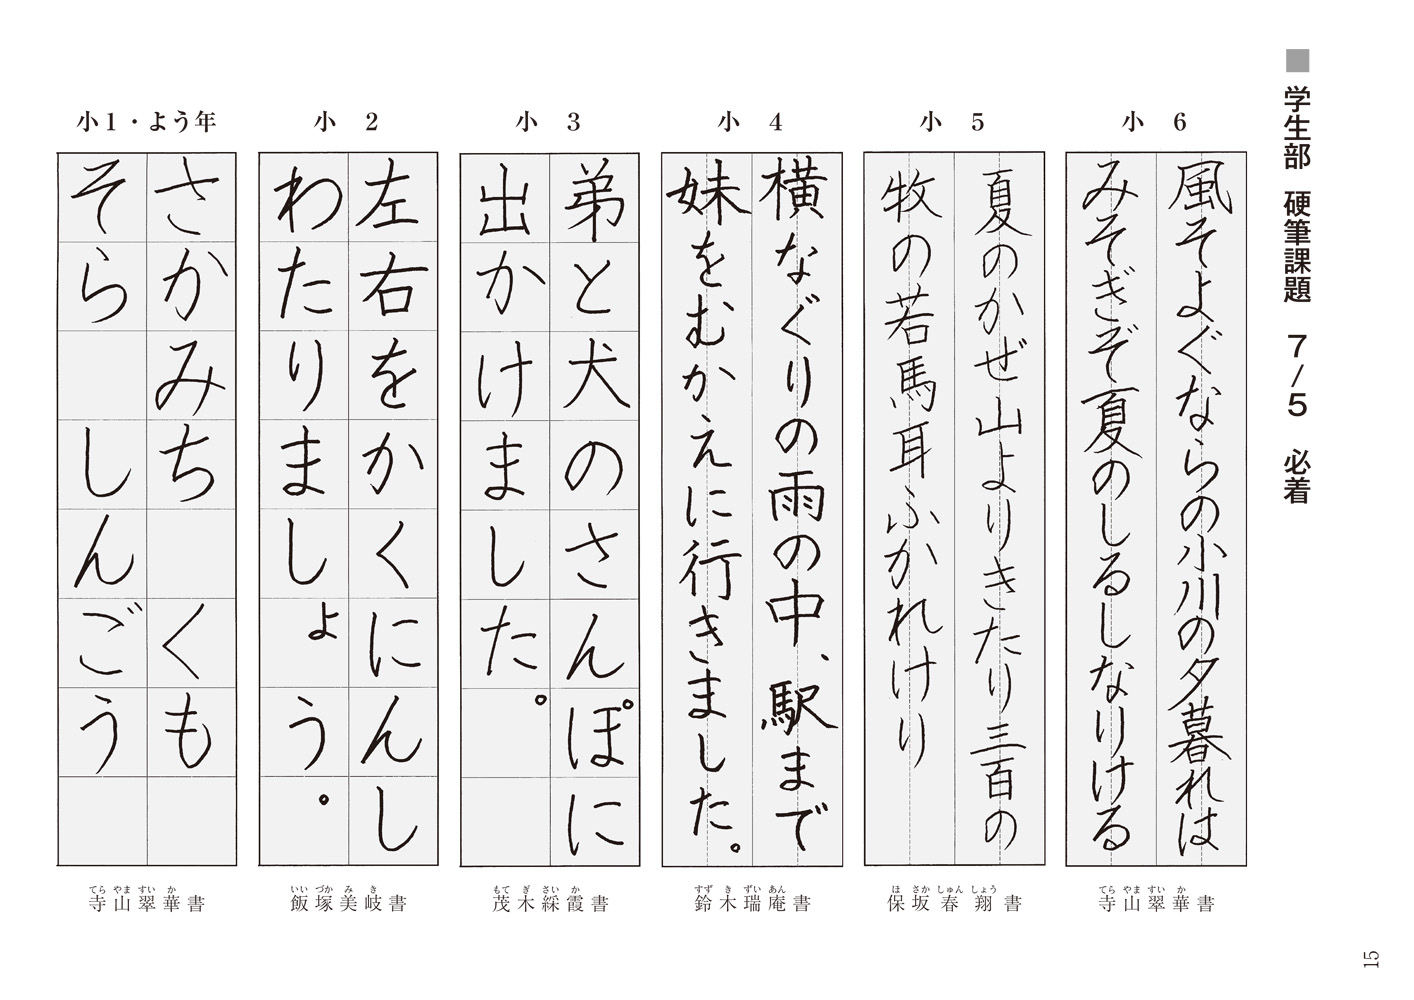 ■ 学生部 硬筆課題 7/5 必着
小 6
風そよぐならの小川の夕暮れは
みそぎぞ夏のしるしなりける
てらやますいか
寺山翠華書
小 5
夏のかぜ山よりきたり三百の
牧の若馬耳ふかれけり
ほさかしゅんしょう
保坂春翔書
小 4
横なぐりの雨の中、駅まで
妹をむかえに行きました。
すずきずいあん
鈴木瑞庵書
小 3
弟と犬のさんぽに
出かけました。
もてぎさいか
茂木綵霞書
小 2
左右をかくにんし
わたりましょう。
いいづかみき
飯塚美岐書
小1・よう年
さかみち くも
そら しんごう
てらやますいか
寺山翠華書
15